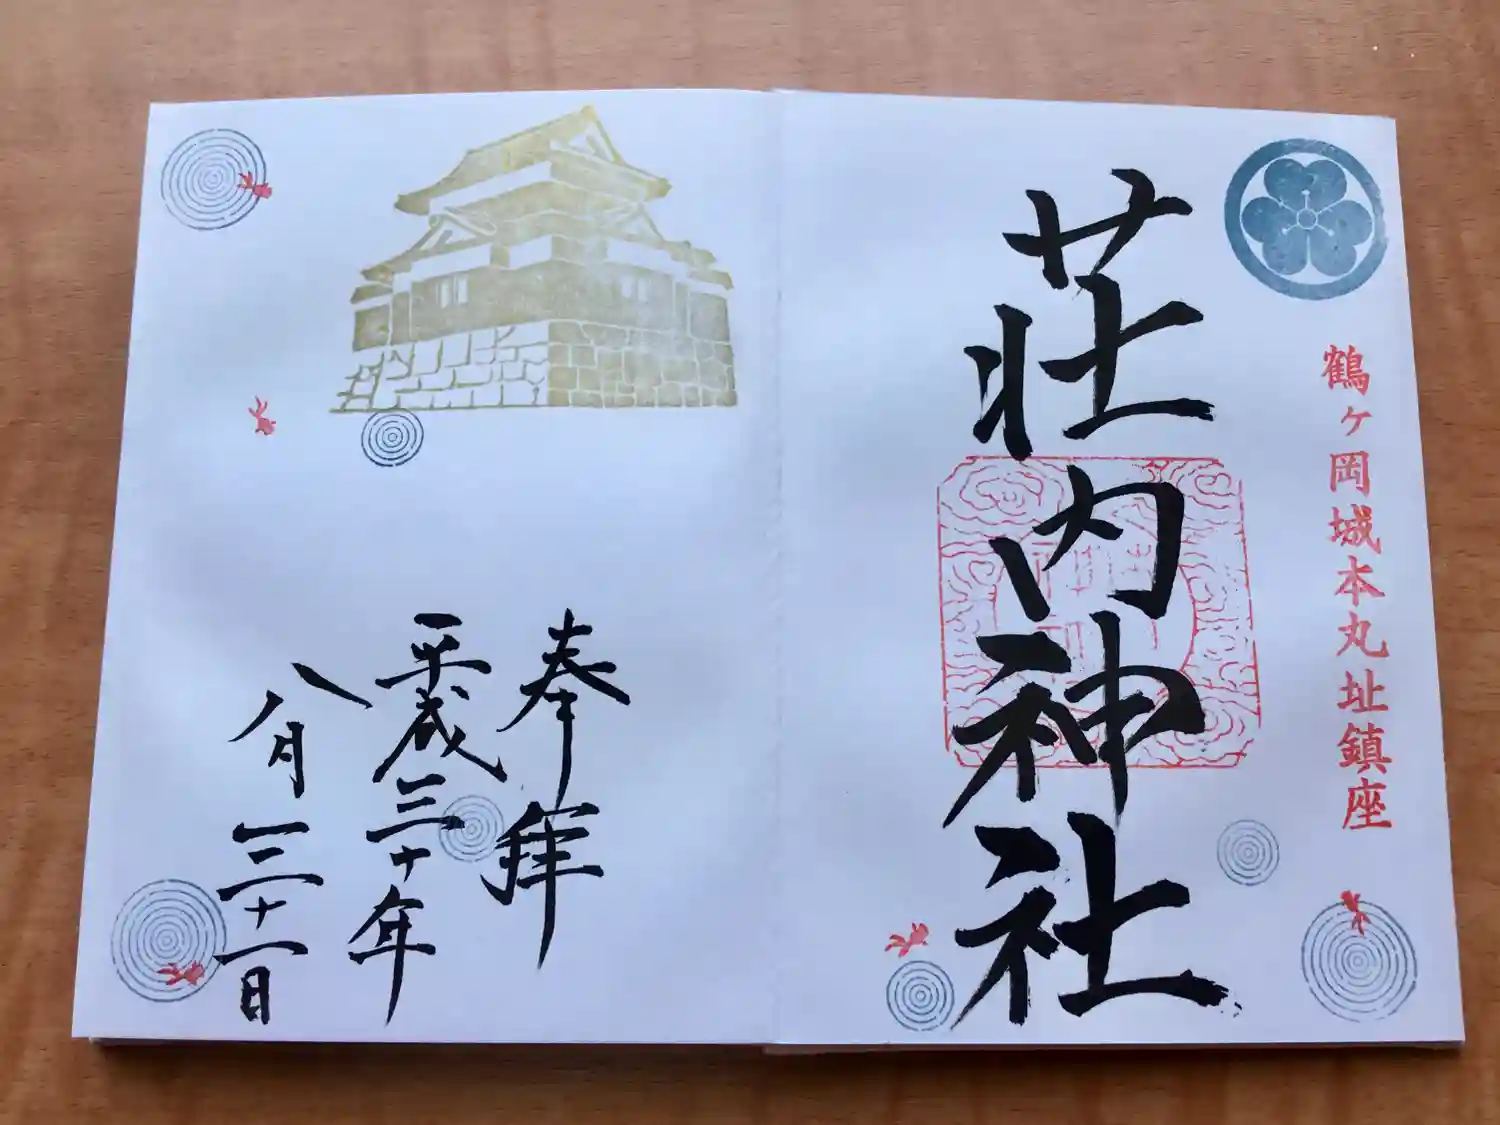 鶴ヶ岡城本丸址鎮座
荘内神社
奉拝
平成三十年
八月三十一日